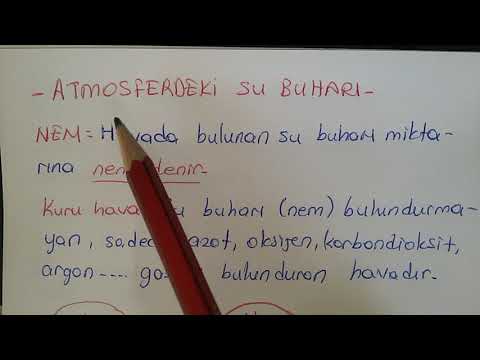 - ATMOSFERDEKİ SU BUHARI -
NEM = Havada bulunan su buharı mikta-
rına nem denir.
Kuru hava su buharı (nem) bulundurma-
yan, sadece azot, oksijen, karbondioksit,
argon .... bulunduran havadır.